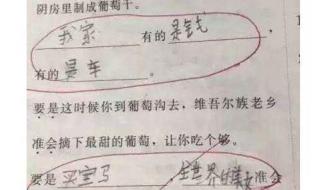 阴房里制成葡萄干。
我家 有的 是钱
有的 是车
要是这时候你到葡萄沟去，维吾尔族老乡
准会摘下最甜的葡萄，让你吃个够。
要是 买宝马 ，全世界的美女 准会